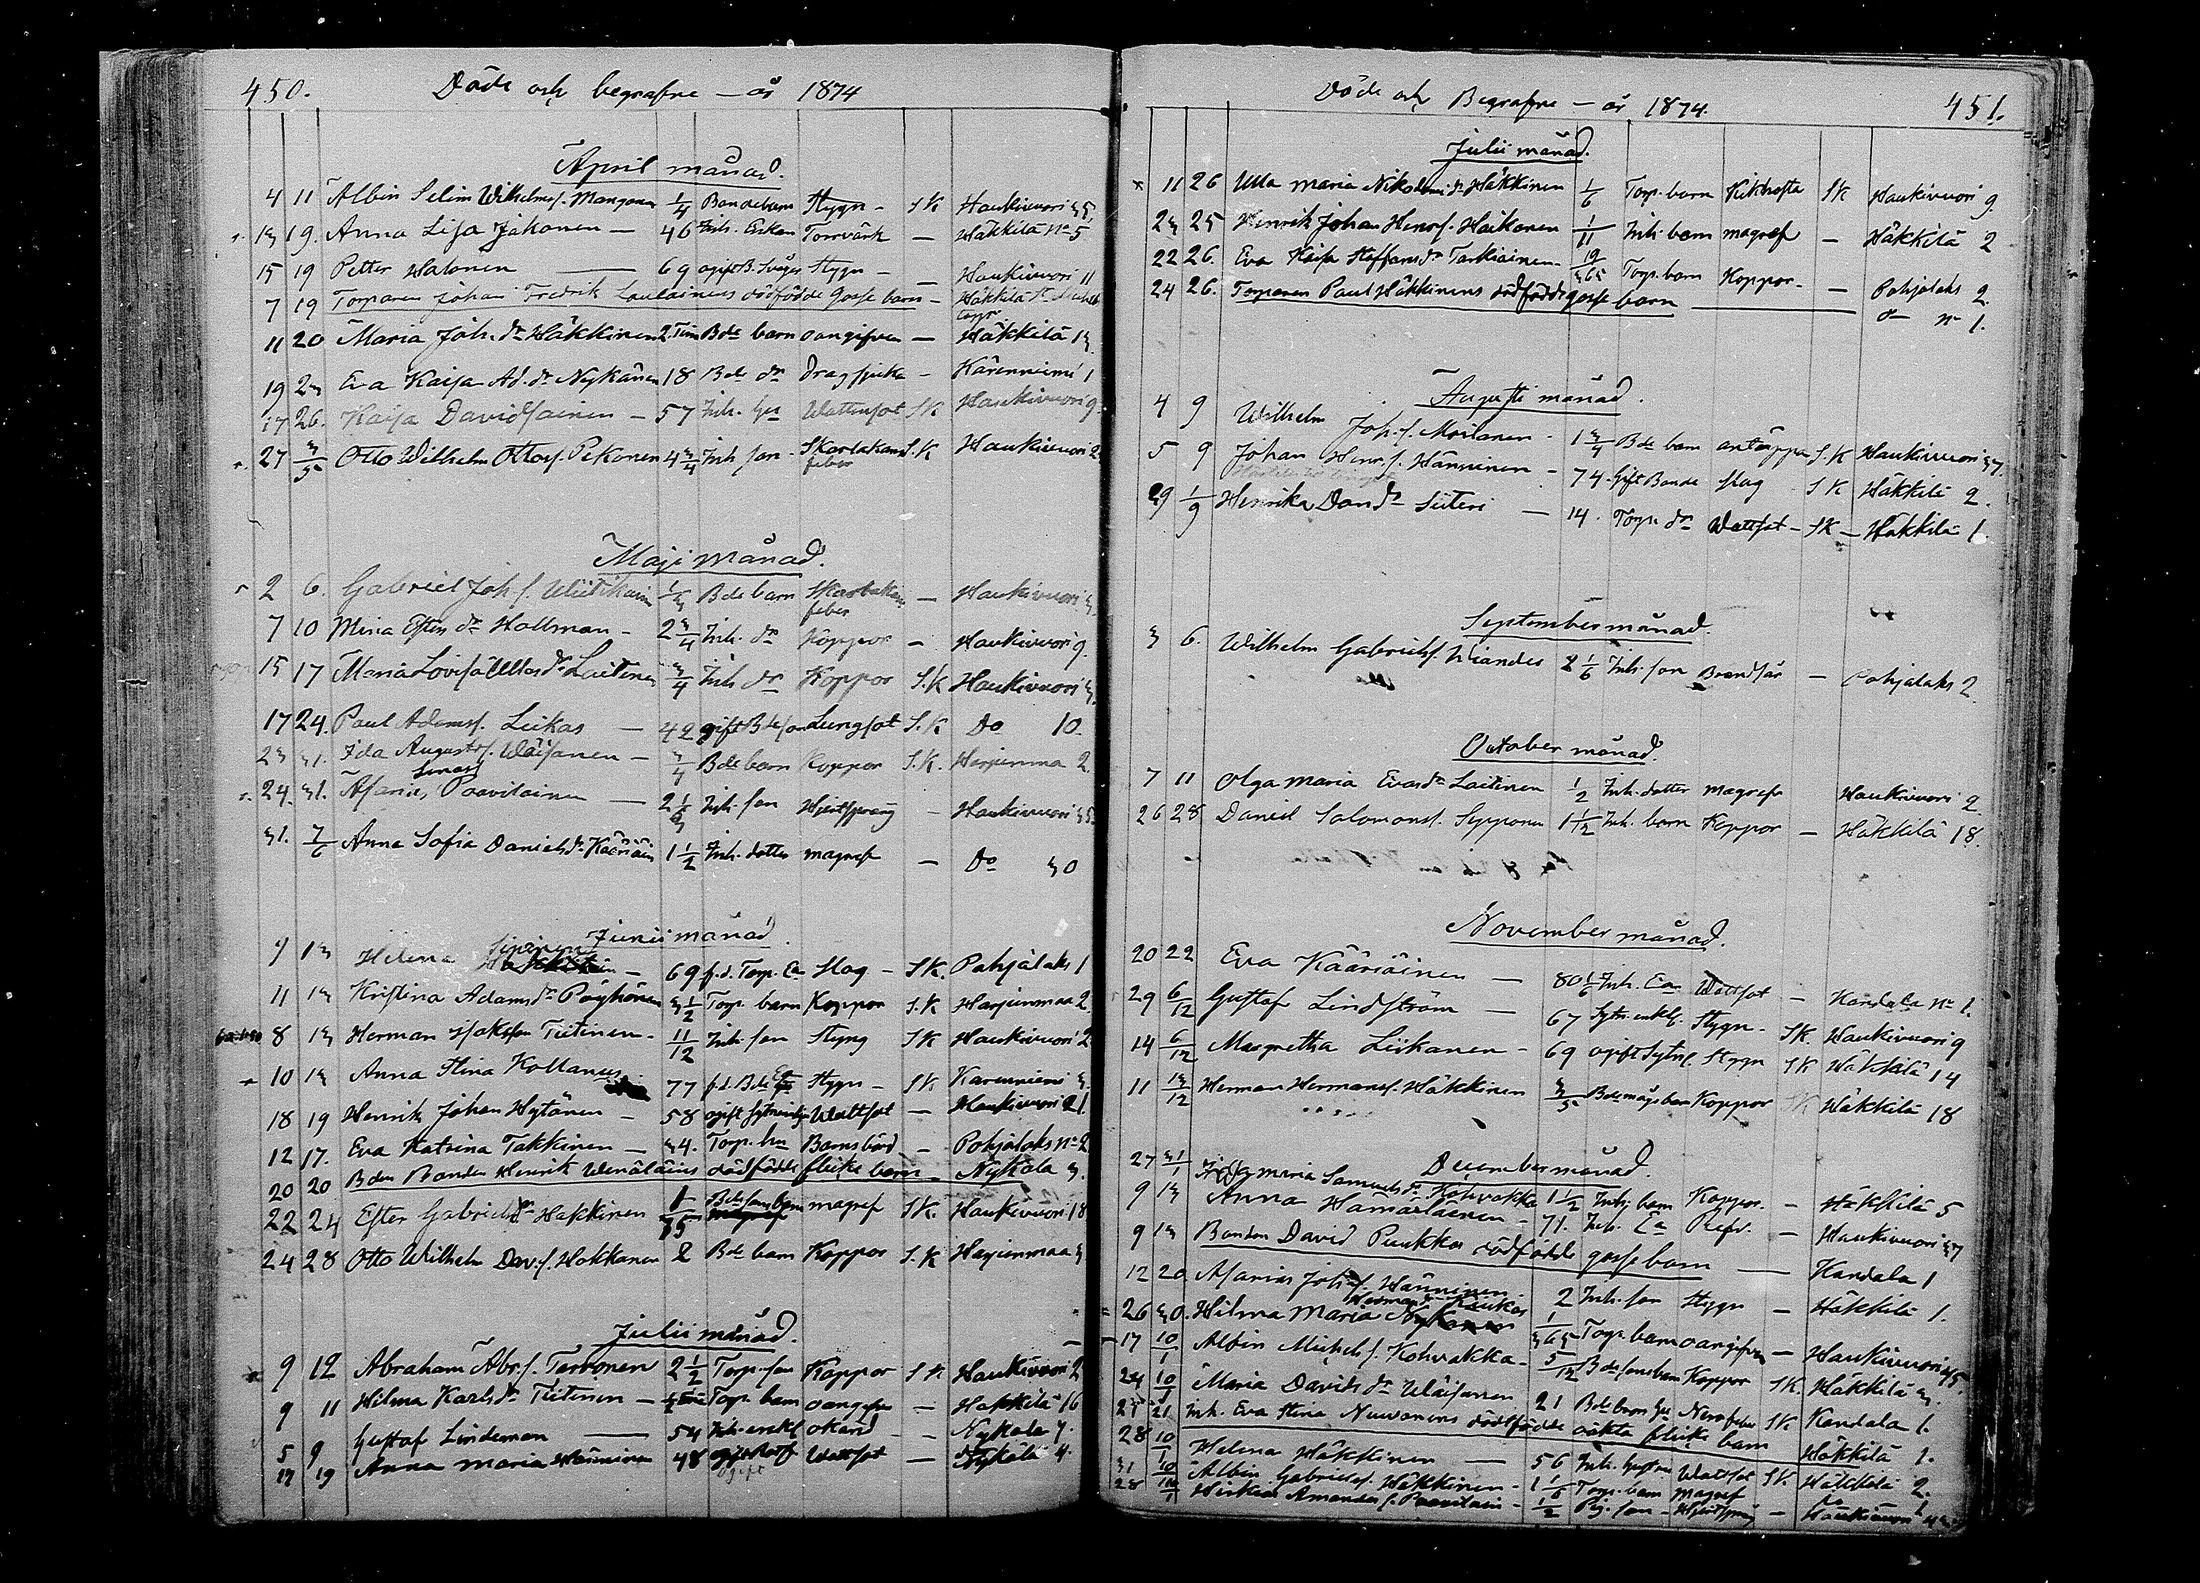 450. Döde och begrafne — år 1874
April månad.
4 11 Albin Selim Wilhelmss. Manganen 1/4 Bondebarn Stygn - SK Haukivuori 35
13 19. Anna Lisa Jäkonen — 46 Inh. Enkan — Häkkilä No 5
15 19 Petter Halonen — 69 ogift B. Stygn — Haukivuori 11
7 19 Torparen Johan Fredrik Laulainens dödfödde Gosse barn — Häkkilä
11 20 Maria Joh. dr Häkkinen 2 Tim Bde barn oangifven — Häkkilä 13.
19 23 Eva Kaisa Ad. dr Nykänen 18 Bde dr Dragsjuka — Kärenniemi 1
17 26. Kaisa Davidsainen — 57 Inh. Wattusot SK Haukivuori 9
27 3/5 Otto Wilhelm Ottoss. Pekonen 4 3/4 Inh son - Skarlakans feber S.K Haukivuori 2
Maji månad.
2 6. Gabriel Joh. s. 1/3 Bde barn Skarlakans feber — Haukivuori 3.
7 10 Mina Esters dr Hallman - 2 3/4 Inh. dr Koppor — Haukivuori 9.
15 17 Maria Lovisa Ullas dr Laitinen 3/4 Inh dr Koppor S.K Haukivuori 3.
17 24. Paul Adamss. Liikas — 42 gift Bdeson Lungsot S.K Do 10.
23 31. Ida Augusts. Wäisänen — 3/4 Bde barn Koppor S.K. Harjunmaa 2.
24. 31. Asarias Paavilainen — 2 Inh. son Hjertsprång — Haukivuori 35
31. 7/6 Anna Sofia Daniels dr Kääriäin 1 1/2 Inh. dotter magref — Do 30
Junii månad.
9 13 Helena Sipinen — 69 f.d. Torp. Ea Slag - S.K. Pohjalaks 1
11 13 Kristina Adams dr Pöyhönen 3 1/2 Torp. barn Koppor S.K Harjunmaa 2
8 13 Herman Isaksson Tiitinen - 11/12 Inh. son Styng SK Haukivuori 2
10 13 Anna Stina Kollanus 77 f.d. Bde Ea Stygn - SK Karenniemi 3.
18 19 Henrik Johan Hytönen — 58 ogift Wattsot — Haukivuori 21.
12 17. Eva Katrina Takkinen — 34. Torp. hu Barnsbörd — Pohjalaks No 2
20 20 Bden Bonden Henrik Wenäläines dödfödde flicke barn — Nykälä 3.
22 24 Ester Gabriels dr Hakkinen Bdesons barn magref SK. Haukivuori 18
24 28 Otto Wilhelm Dav. s. Hokkanen 2 Bde barn Koppor S.K Harjunmaa 3
Julii månad.
9 12 Abraham Abr. s. Tarvonen 2 1/2 Torp. son Koppor SK Haukivuori 2
9 11 Hilma Karls dr Tiitinen — Torp. barn oangifven — Häkkilä 16
5 9 Gustaf Lindeman — 54 Inh. enkl okänd — Nykälä 7.
17 19 Anna Maria Hänninen 48 ogift Wattsot — Nykälä 4.
Döde och Begrafne — år 1874. 451.
Julii månad.
11 26 Ulla Maria Nikodemi dr Häkkinen 1/6 Torp. barn Kikhosta SK Haukivuori 9.
23 25 Henrik Johan Henrs. Haikonen 1/11 Inh. barn magref — Häkkilä 2
22 26. Eva Kaisa Staffans dr Tarkiainen 19/365 Torp. barn Koppor — Pohjalaks 2.
24 26. Torparen Paul Häkkinens dödfödde gosse barn — do No 1.
Augusti månad.
4 9 Wilhelm Joh. s. Moilanen - 1 3/4 Bde barn S.K Haukivuori 37.
5 9 Johan Henr. s. Hänninen - 74 Gift Bonde slag SK Häkkilä 2.
29 1/9 Henrika Dav dr Siiteri — 14. Torp. dr Wattsot - SK — Häkkilä 1.
Septembermånad.
3 6. Wilhelm Gabrielss. Kiander 2 1/6 Inh. son Brandsår — Pohjalaks 2.
October månad.
7 11 Olga Maria Evas dr Laitinen 1/2 Inh. dotter magref Haukivuori 2.
26 28 Daniel Salomonss. Sepponen 1 1/12 Inh. barn Koppor — Häkkilä 18.
November månad.
20 22 Eva Kääriäinen — 80 1/6 Inh. Ea Wattsot — Kandala No 1.
29 6/12 Gustaf Lindström — 67 Sytn. enkl. Stygn - SK. Haukivuori 9
14 6/12 Margretha Liikanen - 69 ogift Sytn. Stygn SK Häkkilä 14
11 13/12 Herman Hermanss. Häkkinen 3/5 Bde mågs barn Koppor SK Häkkilä 18
December månad.
27 31/1 Ida Maria Samuels dr Kohvakka 1 1/2 Inh. barn Koppor — Häkkilä 5
9 13 Anna Hämäläinen - 71. Inh. Ea — Haukivuori 37
9 13 Bonden David Puukkos dödfödde gosse barn — Kandala 1
12 20 Asarias Joh. s. Hänninen 2 Inh. son Stygn — Häkkilä 1.
26 30. Hilma Maria Hermans dr Raukas 1/365 Torp. barn oangifven — Haukivuori 45.
17 10/1 Albin Michels s. Kohvakka - 5/12 Bdesons barn Koppor SK. Häkkilä 3.
24 10/1 Maria Davids dr Wäisänen 21 Bde Nervfeber SK Kandala 1.
25 21 Inh. Eva Stina Nuuvonens dödfödde oäkta flicke barn Häkkilä 1.
28 10/1 Helena Häkkinen — 56 Inh. hustru Wattsot SK. Häkkilä 2.
31 10/1 Albin Gabrielss. Häkkinen - 1 1/6 Torp. barn Magref Do 1
28 Amandas s. Paavilain - 1/2 Pig. son - Hjertsprång — Haukivuori